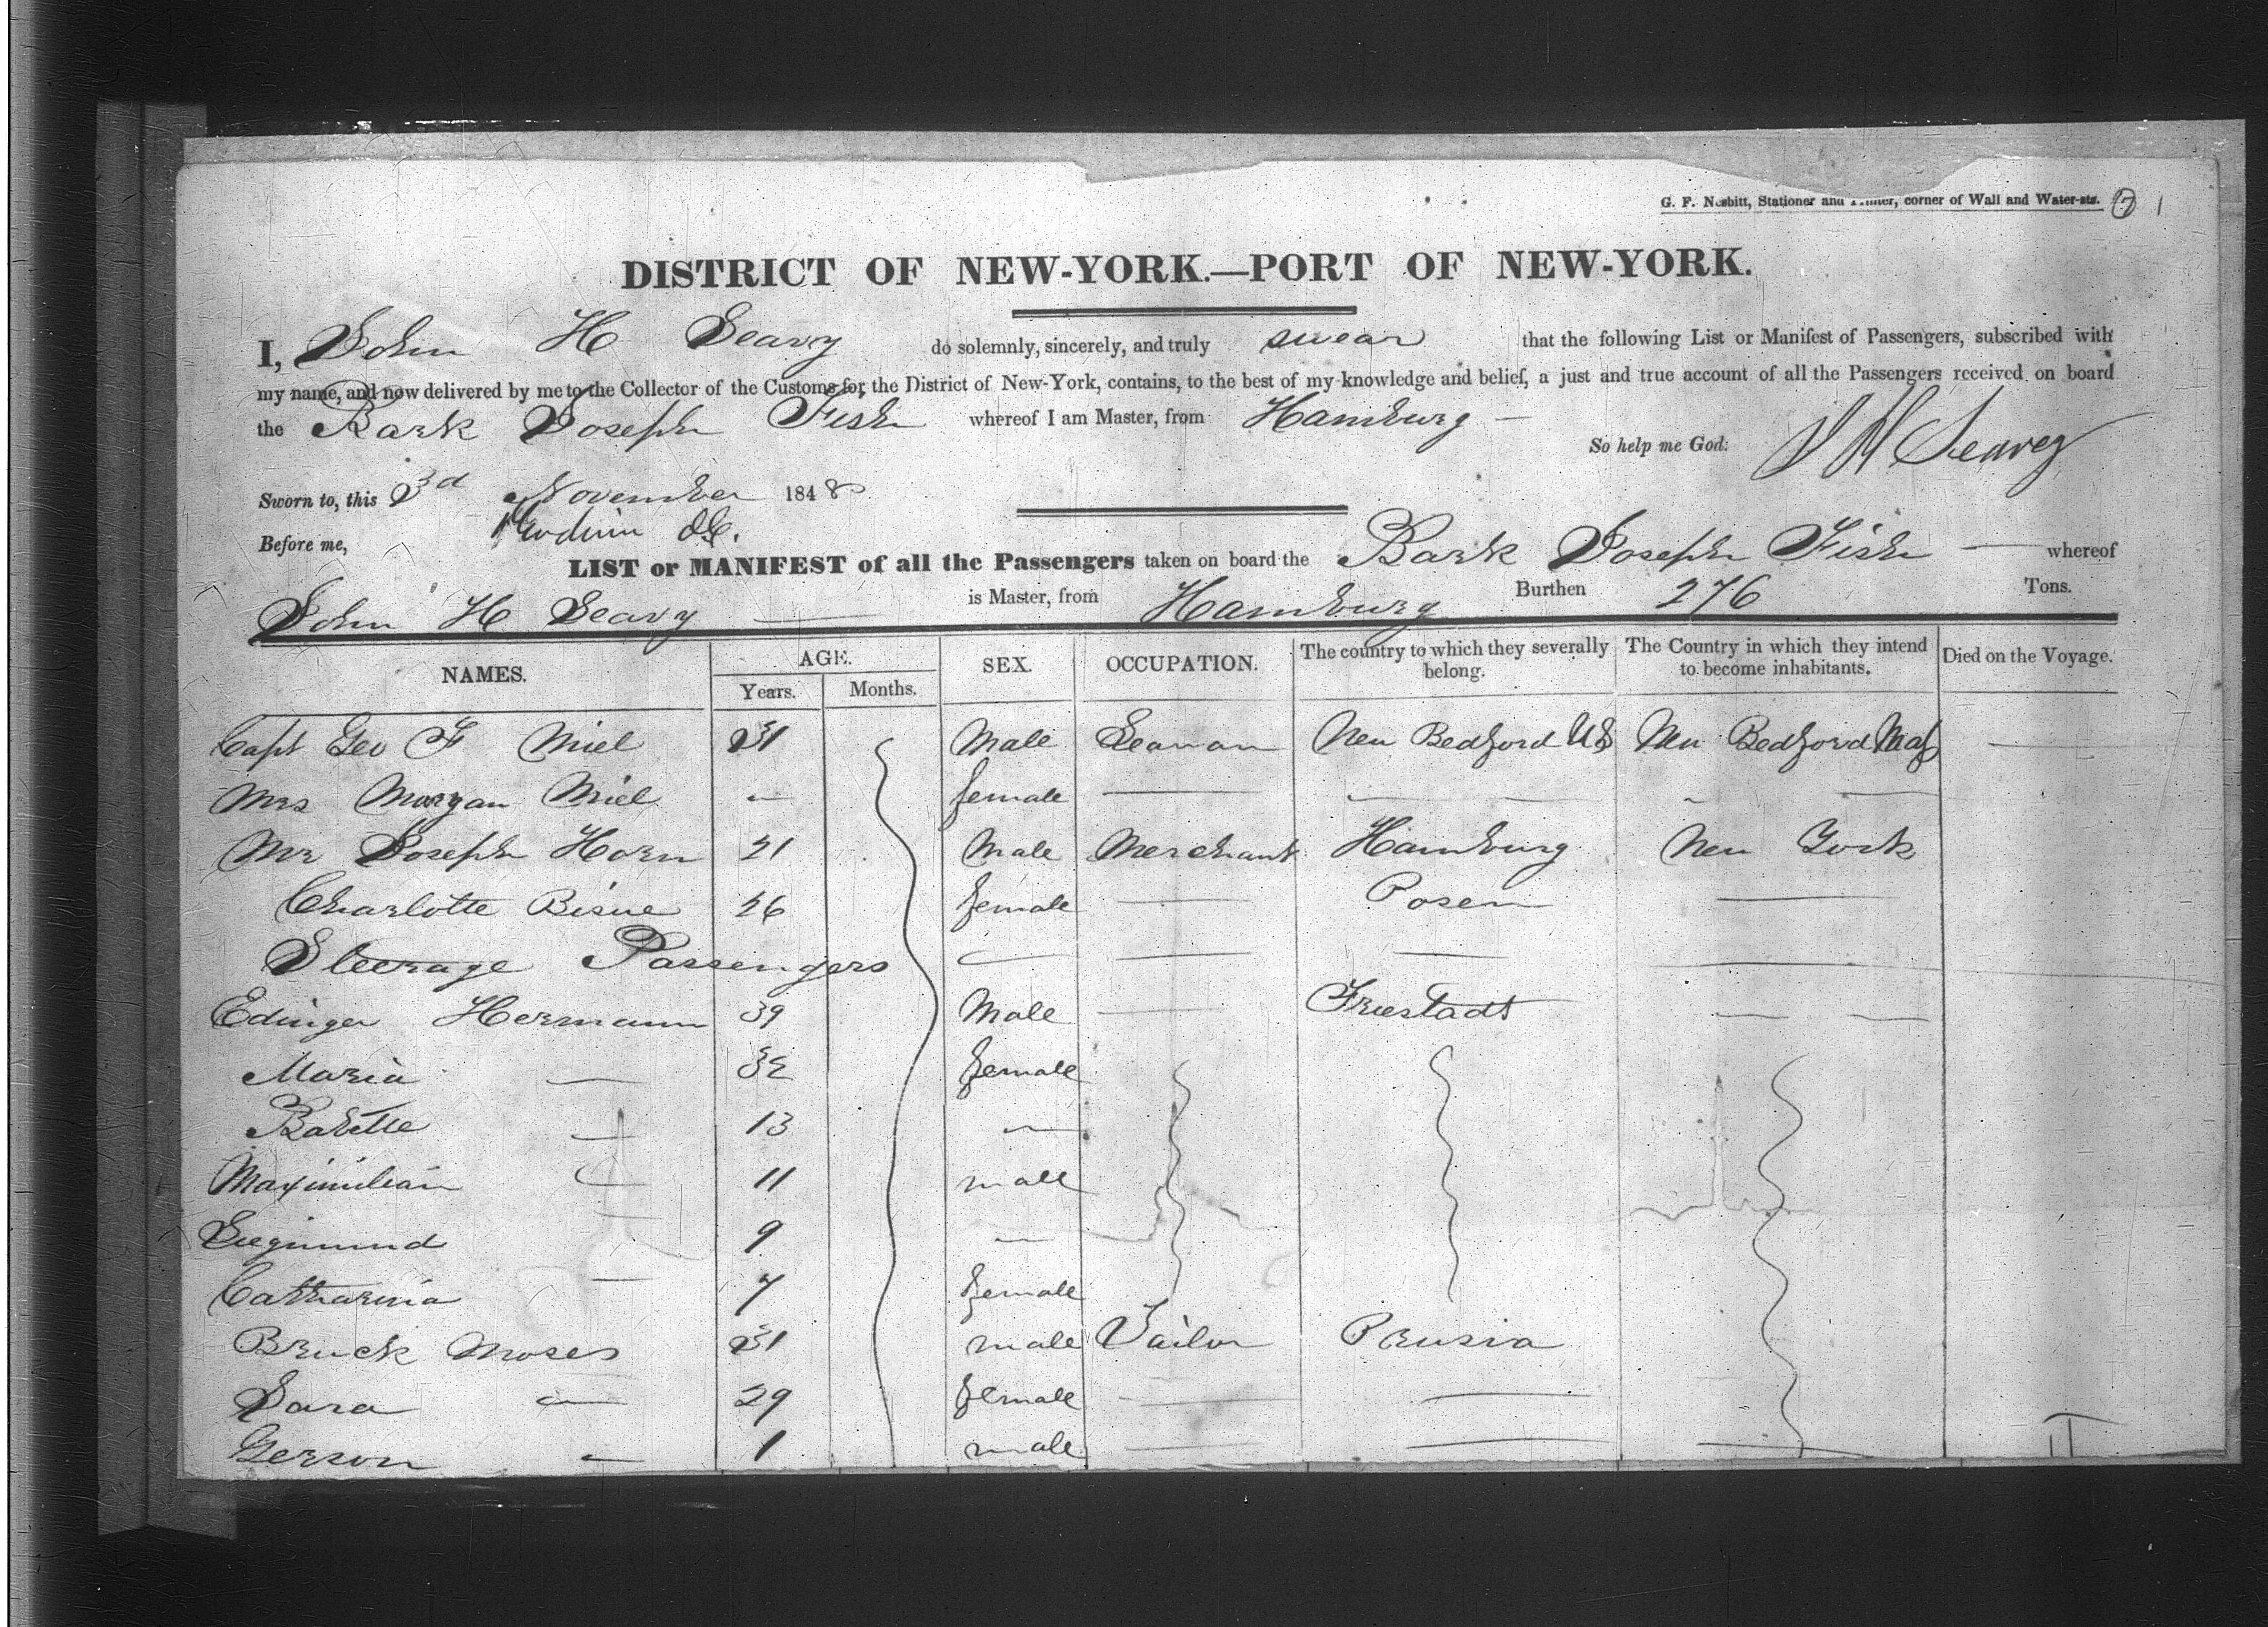 G. F. Nesbitt, Stationer and Printer, corner of Wall and Water-sts. 7 1
DISTRICT OF NEW-YORK.—PORT OF NEW-YORK.
I, John H Seavy do solemnly, sincerely, and truly swear that the following List or Manifest of Passengers, subscribed with
my name, and now delivered by me to the Collector of the Customs for the District of New-York, contains, to the best of my knowledge and belief, a just and true account of all the Passengers received on board
the Bark Joseph Fish whereof I am Master, from Hamburg —
So help me God: J H Seavey
Sworn to, this 3d November 1848
Before me,
LIST or MANIFEST of all the Passengers taken on board the Bark Joseph Fish — whereof
John H Seavy — is Master, from Hamburg Burthen 276 Tons.
NAMES. AGE. Years. Months. SEX. OCCUPATION. The country to which they severally belong. The Country in which they intend to become inhabitants. Died on the Voyage.
Capt Geo F Niel 31 Male Seaman New Bedford US New Bedford Mass —
Mrs Morgan Niel — female — — —
Mr Joseph Horn 21 Male Merchant Hamburg New York
Charlotte 26 female — Posen —
Steerage Passengers — — — —
Edinger Hermann 39 Male — Friestadt — —
Maria — 32 female
Babette — 13 —
Maximilian — 11 male
Siegmund — 9 —
Catharina — 7 female
Bruck Moses 31 male Tailor Prusia
Sara — 29 female — —
Gerson — 1 male — — —